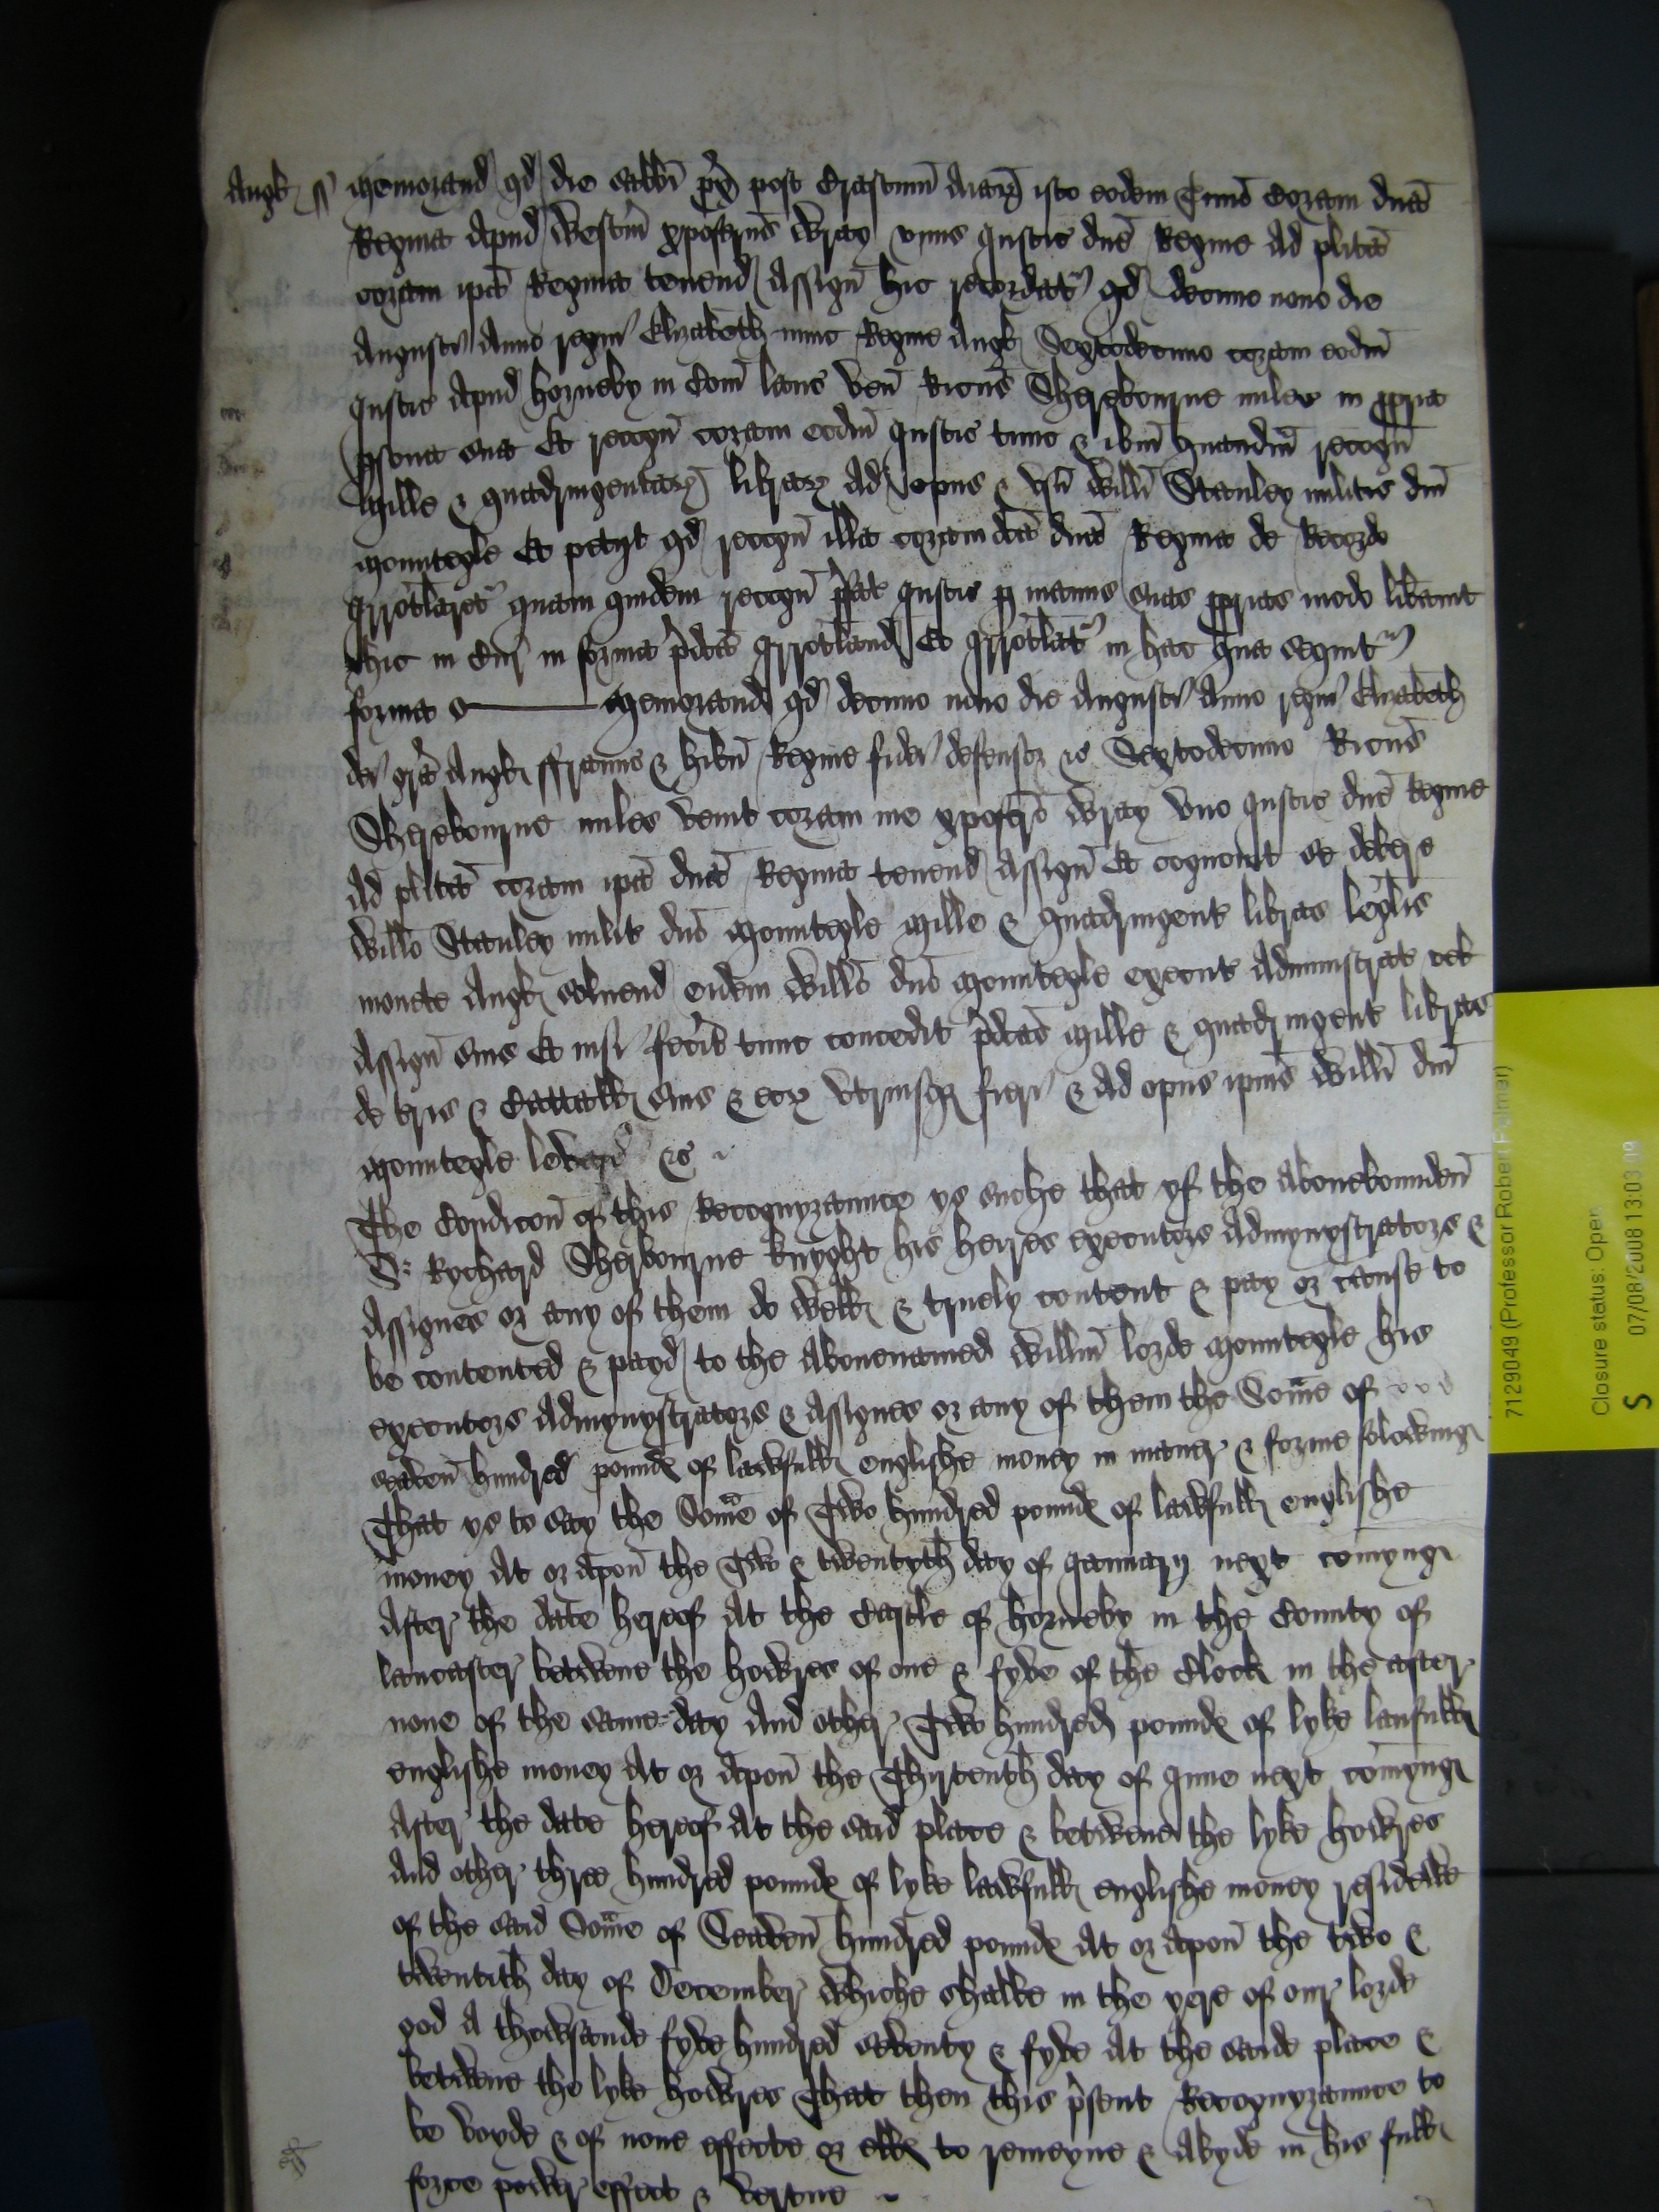 Angl ss Memorand qd die Sabbi px post Crastinu Animar isto eodem Tmino Coram dna
Regina apud Westm xpoferus Wray unus Justic dne Regine ad plita
coram ipa Regina tenend assign hic recordatr qd decimo nono die
Augusti Anno regni Elizabeth nunc Regine Angl Sextodecimo coram eodm
Justic apud Horneby in Com Lanc ven Ricus Sherebourne miles in ppria
psona sua Et recogn coram eodm Justic tunc & ibm quandm recogn
Mille & quadringentar librar ad opus & usu Willi Stanley militis dni
Mountegle Et petiit qd recogn illa coram dca dna Regina de Recordo
Irrotlaret quam quidem recogn pfat Justic p manus suas pprias modo libavit
hic in Cur in forma pdca Irrotland Et Irrotlatr in hec vba sequitr
forma s Memorand qd decimo nono die Augusti Anno regni Elizabeth
dei gra Angl ffranc & hibn Regine fidei defensor &c Sextodecimo Ricus
Sherebourne miles venit coram me xpofero Wray uno Justic dne Regine
ad plita coram ipa dna Regina tenend assign Et cognovit se debere
Willo Stanley milit dno Mountegle Mille & quadringent libras leglis
monete Angl solvend eidem Willo dno Mountegle execut Administrat vel
assign suis Et nisi fecit tunc concedit pdcas Mille & quadringent libras
de tris & Catallis suis & eor utriusq fieri & ad opus ipius Willi dni
Mountegle levari &c
The Condicon of this Recognyzaunce ys suche that yf the abovebounden
Sr Rychard Sherbourne knyght his heires executors Admynystrators &
Assignes or any of them do well & truely content & pay or cause to
be contented & payd to the abovenamed Willm lorde Mountegle his
executors Admynystrators & Assignes or any of them the Some of
seaven hundred pounde of lawfull englishe money in maner & forme folowing
That ys to say the Some of Two hundred pounde of lawfull englishe
money At or apon the Two & twentyth day of January next comyng
After the date hereof At the Castle of Horneby in the County of
Lancaster betwene the howres of one & fyve of the Clock in the after
none of the same day And other Two hundred pounde of lyke laufull
englishe money At or apon the Thyrtenth day of June next comyng
After the date hereof At the said place & betwene the lyke howres
And other three hundred pounde of lyke lawfull englishe money residewe
of the said Some of Seaven hundred pounde At or apon the two &
twentith day of December whiche shalbe in the yere of our lorde
god A thowsande fyve hundred seventy & fyve At the saide place &
betwene the lyke howres That then this psent Recognyzaunce to
be voyde & of none effecte or elle to remeyne & abyde in his full
force power effect & vertue
7129049 (Professor Robert Palmer)
Closure status: Open
S 07/08/2008 13:03:09